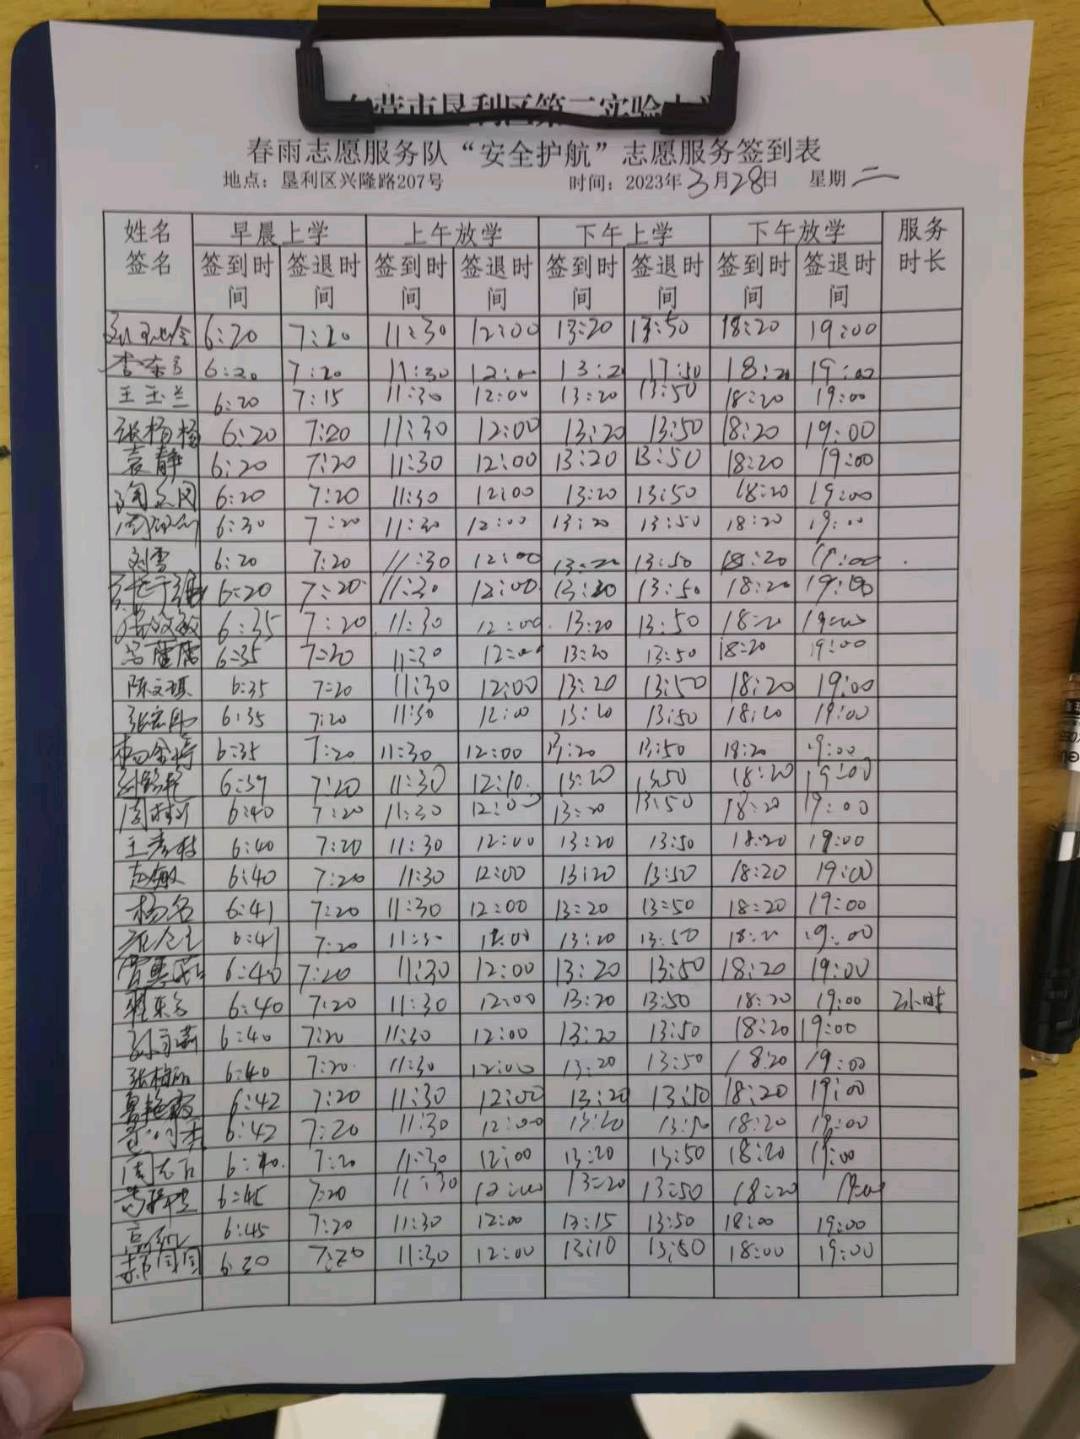 东营市垦利区第二实验小学
春雨志愿服务队“安全护航”志愿服务签到表
地点：垦利区兴隆路207号 时间：2023年3月28日 星期二
姓名签名 早晨上学 上午放学 下午上学 下午放学 服务时长
签到时间 签退时间 签到时间 签退时间 签到时间 签退时间 签到时间 签退时间
6:20 7:20 11:30 12:00 13:20 13:50 18:20 19:00
6:20 7:20 11:30 12:00 13:20 17:50 18:20 19:00
王玉兰 6:20 7:15 11:30 12:00 13:20 13:50 18:20 19:00
张杨杨 6:20 7:20 11:30 12:00 13:20 13:50 18:20 19:00
袁静 6:20 7:20 11:30 12:00 13:20 13:50 18:20 19:00
6:20 7:20 11:30 12:00 13:20 13:50 18:20 19:00
6:30 7:20 11:30 12:00 13:20 13:50 18:20 19:00
刘雪 6:20 7:20 11:30 12:00 13:20 13:50 18:20 19:00
6:20 7:20 11:30 12:00 13:20 13:50 18:20 19:00
6:35 7:20 11:30 12:00 13:20 13:50 18:20 19:00
6:35 7:20 11:30 12:00 13:20 13:50 18:20 19:00
陈文琪 6:35 7:20 11:30 12:00 13:20 13:50 18:20 19:00
6:35 7:20 11:30 12:00 13:20 13:50 18:20 19:00
6:35 7:20 11:30 12:00 13:20 13:50 18:20 19:00
6:39 7:20 11:30 12:10 13:20 13:50 18:20 19:00
6:40 7:20 11:30 12:00 13:20 13:50 18:20 19:00
王秀枝 6:40 7:20 11:30 12:00 13:20 13:50 18:20 19:00
6:40 7:20 11:30 12:00 13:20 13:50 18:20 19:00
杨名 6:41 7:20 11:30 12:00 13:20 13:50 18:20 19:00
6:41 7:20 11:30 12:00 13:20 13:50 18:20 19:00
6:40 7:20 11:30 12:00 13:20 13:50 18:20 19:00
6:40 7:20 11:30 12:00 13:20 13:50 18:20 19:00 2小时
6:40 7:20 11:30 12:00 13:20 13:50 18:20 19:00
6:40 7:20 11:30 12:00 13:20 13:50 18:20 19:00
6:42 7:20 11:30 12:00 13:20 13:50 18:20 19:00
6:42 7:20 11:30 12:00 13:20 13:50 18:20 19:00
6:40 7:20 11:30 12:00 13:20 13:50 18:20 19:00
6:45 7:20 11:30 12:00 13:20 13:50 18:20 19:00
6:45 7:20 11:30 12:00 13:15 13:50 18:00 19:00
6:20 7:20 11:30 12:00 13:10 13:50 18:00 19:00